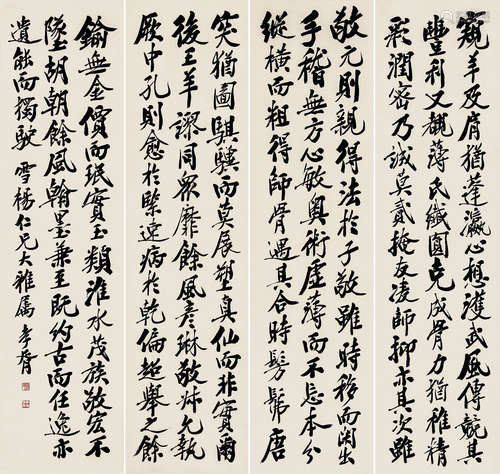 窺羊及肩猶蓬瀛心想護武風傳競其
豐利又覩薄氏纖圓克成骨力猶稚精
彩潤密乃誠莫貳掩友凌師抑亦其次雖
敬元則親得法於子敬雖時移而間出
手稽無方心敏奧術虛薄而不忘本分
縱橫而粗得師骨遇其合時髣髴唐
突猶圖騏驥而莫展塑真仙而非實爾
後王羊謬同眾靡餘風彥琳敬州允執
厥中孔則愈於緊速病於乾偏超舉之餘
鍮無金價而珉實玉類淮水茂族敬宏不
墜胡朝餘風翰墨兼至既約古而任逸亦
遺能而獨駛 雪楊仁兄大雅屬 孝胥